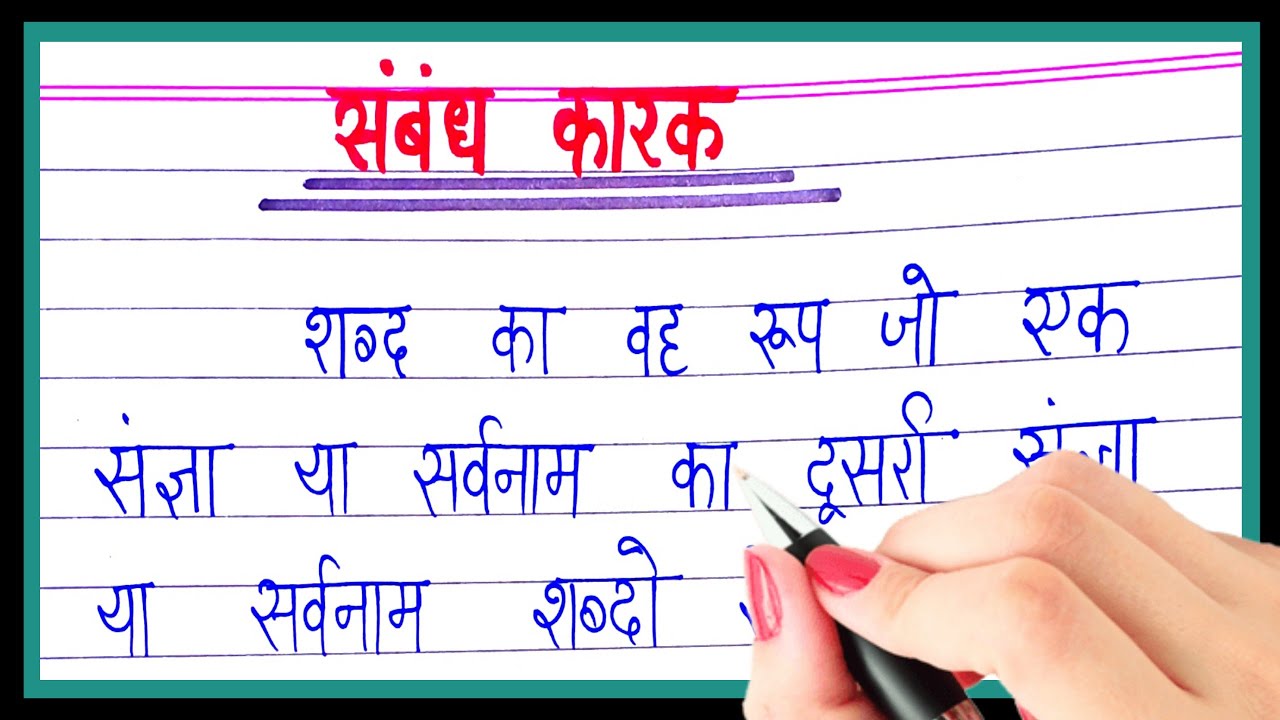 संबंध कारक
शब्द का वह रूप जो एक
संज्ञा या सर्वनाम का दूसरी संज्ञा
या सर्वनाम शब्दो